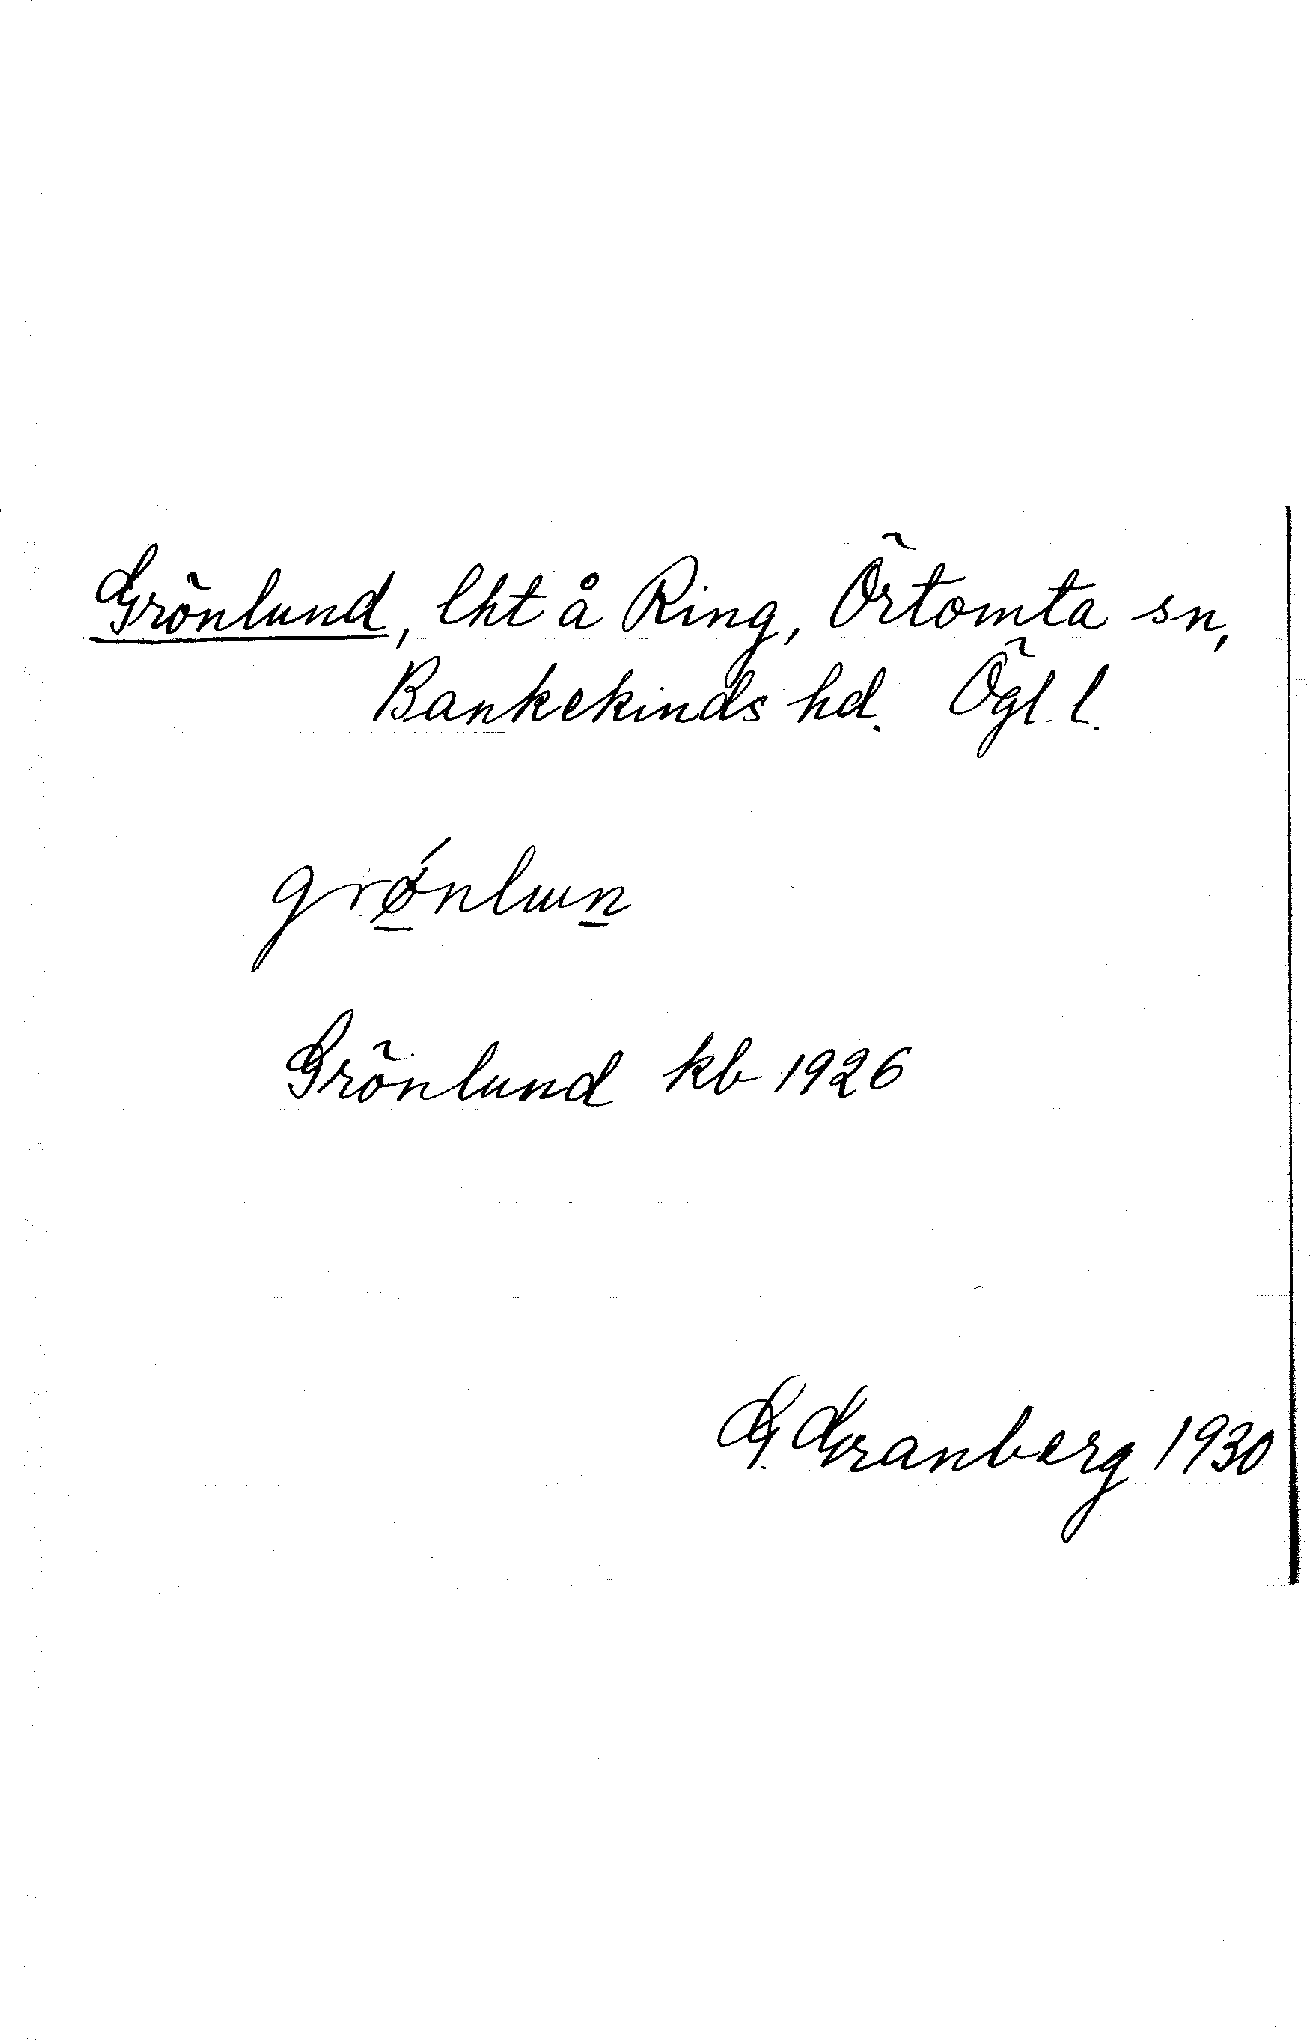 Grönlund, lht å Ring, Örtomta sn,
Bankekinds hd. Ögl. l.
grǿnlun
Grönlund kb 1926
G. Granberg 1930